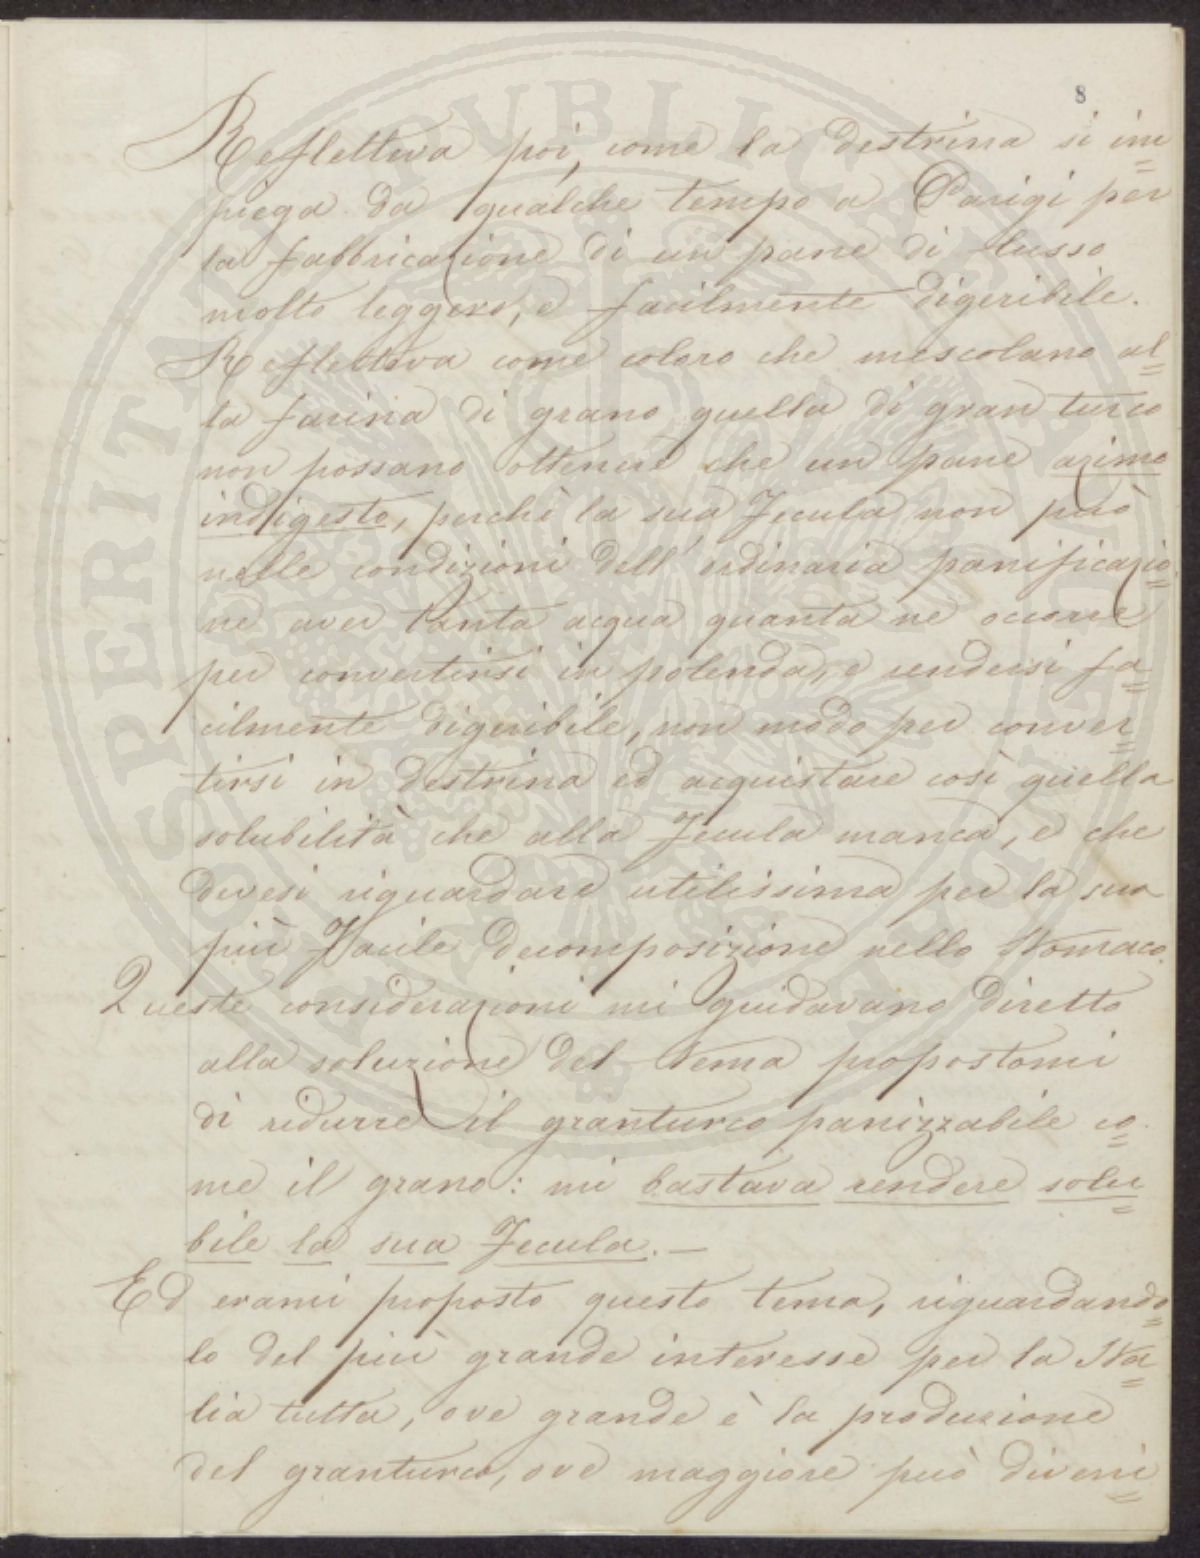 8
Reflettiva poi, come la destrina si im=
piega da qualche tempo a Parigi per
la fabbricazione di un pane di lusso
molto leggero, e facilmente digeribile.
Reflettiva come coloro che mescolano al=
la farina di grano quella di gran turco
non possano ottenere che un pane azimo
indigesto, perchè la sua fecula non può
nelle condizioni dell'ordinaria panificazio=
ne aver tanta acqua quanta ne occorre
per convertirsi in polenda, e rendersi fa=
cilmente digeribile, non modo per conver=
tirsi in destrina ed acquistare così quella
solubilità che alla fecula manca, e che
devesi riguardare utilissima per la sua
più facile decomposizione nello stomaco.
Queste considerazioni mi guidavano diretto
alla soluzione del tema propostomi
di ridurre il granturco panizzabile co=
me il grano: mi bastava rendere solu=
bile la sua fecula. —
Ed erami proposto questo tema, riguardando=
lo del più grande interesse per la Ita=
lia tutta, ove grande è la produzione
del granturco, ove maggiore può diveni=
PROSPERITATI PVBLICAE